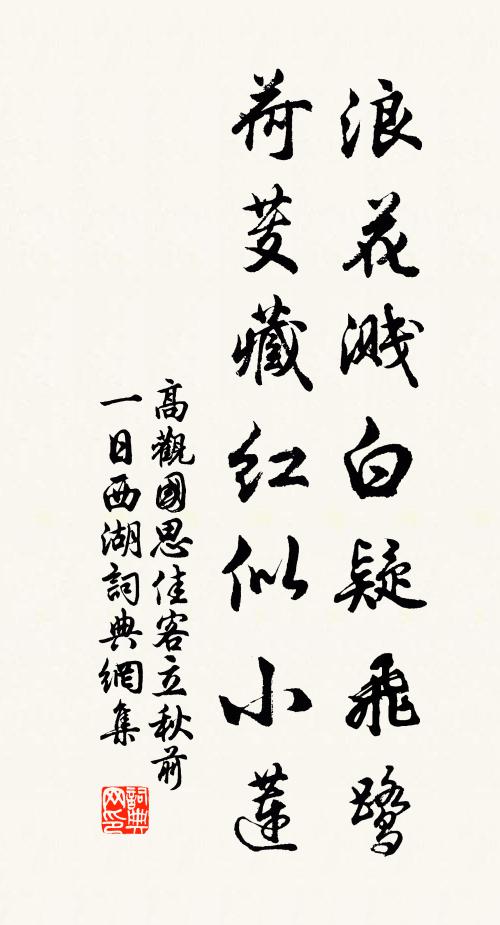 浪花溅白疑飛鷺
荷芰藏红似小蓮
高觀國思佳客立秋前
一日西湖詞典網集
詞典网印